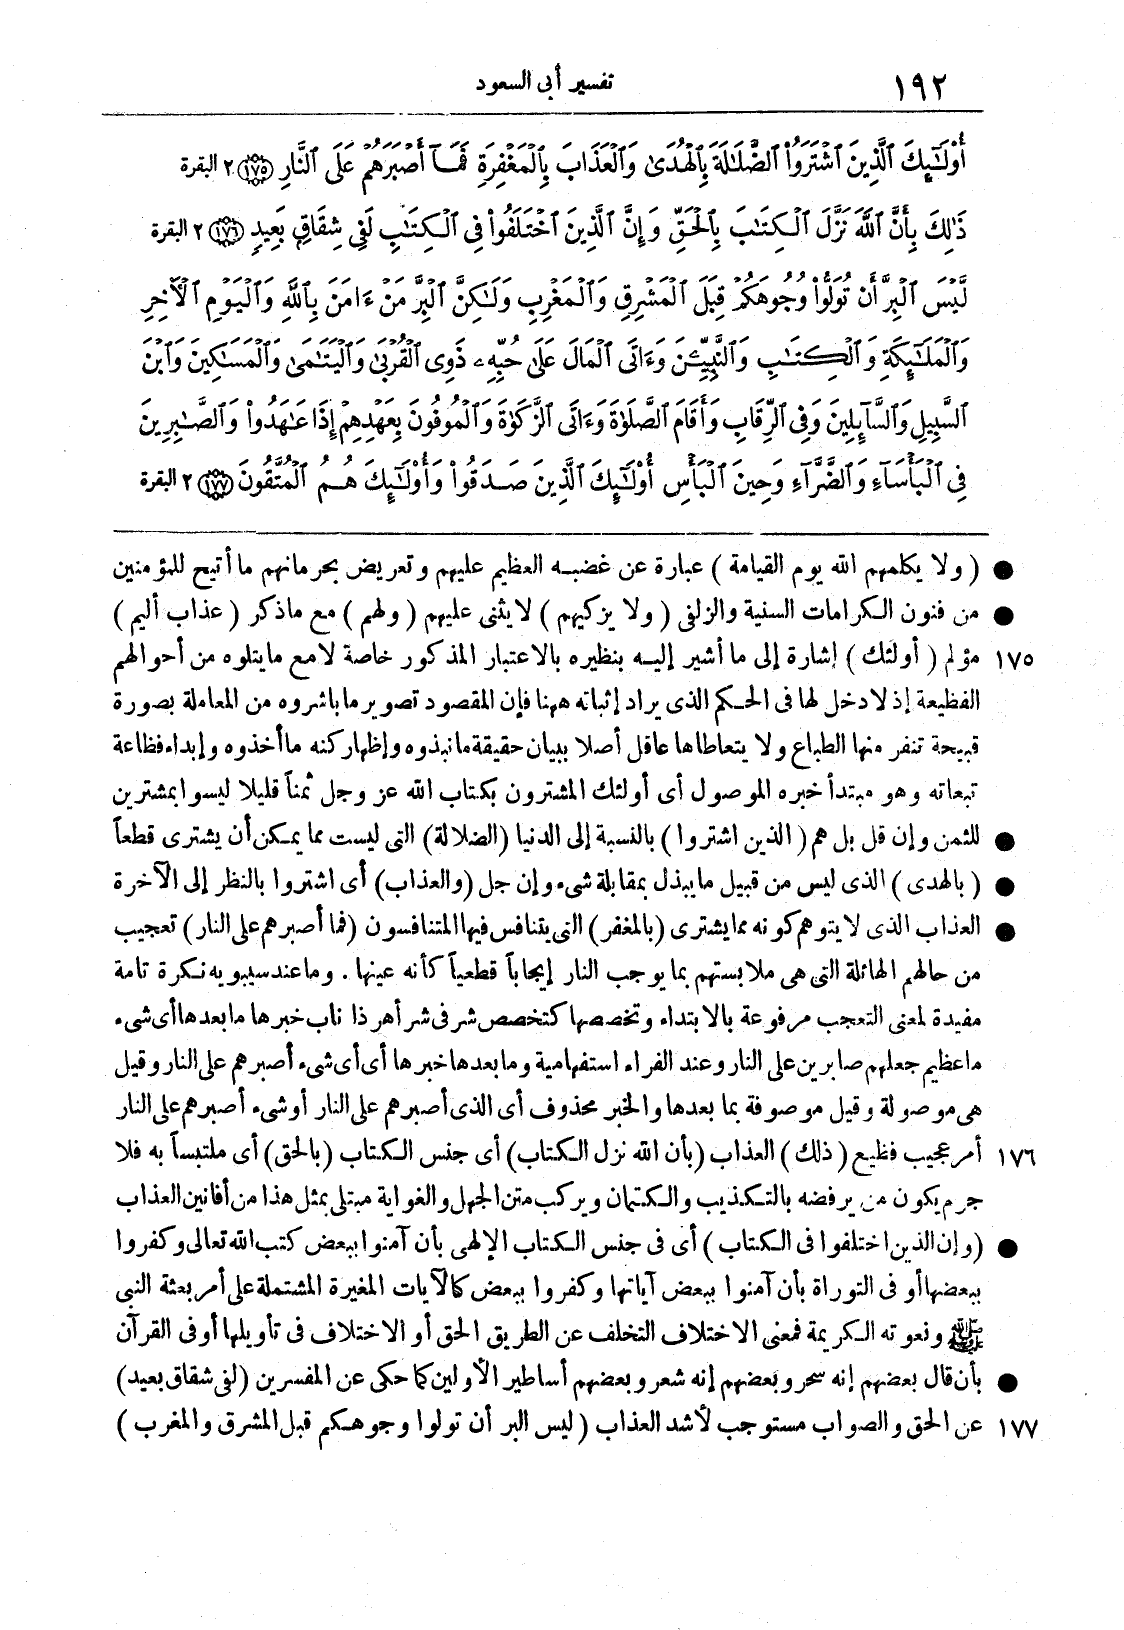 ١٩٢
تفسير أبى السعود
أُوْلَٰٓئِكَ ٱلَّذِينَ ٱشْتَرَوُاْ ٱلضَّلَٰلَةَ بِٱلْهُدَىٰ وَٱلْعَذَابَ بِٱلْمَغْفِرَةِ فَمَآ أَصْبَرَهُمْ عَلَى ٱلنَّارِ ١٧٥ ٢ البقرة
ذَٰلِكَ بِأَنَّ ٱللَّهَ نَزَّلَ ٱلْكِتَٰبَ بِٱلْحَقِّ وَإِنَّ ٱلَّذِينَ ٱخْتَلَفُواْ فِى ٱلْكِتَٰبِ لَفِى شِقَاقٍۭ بَعِيدٍ ١٧٦ ٢ البقرة
لَّيْسَ ٱلْبِرَّ أَن تُوَلُّواْ وُجُوهَكُمْ قِبَلَ ٱلْمَشْرِقِ وَٱلْمَغْرِبِ وَلَٰكِنَّ ٱلْبِرَّ مَنْ ءَامَنَ بِٱللَّهِ وَٱلْيَوْمِ ٱلْأٓخِرِ
وَٱلْمَلَٰٓئِكَةِ وَٱلْكِتَٰبِ وَٱلنَّبِيِّـۧنَ وَءَاتَى ٱلْمَالَ عَلَىٰ حُبِّهِۦ ذَوِى ٱلْقُرْبَىٰ وَٱلْيَتَٰمَىٰ وَٱلْمَسَٰكِينَ وَٱبْنَ
ٱلسَّبِيلِ وَٱلسَّآئِلِينَ وَفِى ٱلرِّقَابِ وَأَقَامَ ٱلصَّلَوٰةَ وَءَاتَى ٱلزَّكَوٰةَ وَٱلْمُوفُونَ بِعَهْدِهِمْ إِذَا عَٰهَدُواْ وَٱلصَّٰبِرِينَ
فِى ٱلْبَأْسَآءِ وَٱلضَّرَّآءِ وَحِينَ ٱلْبَأْسِ أُوْلَٰٓئِكَ ٱلَّذِينَ صَدَقُواْ وَأُوْلَٰٓئِكَ هُمُ ٱلْمُتَّقُونَ ١٧٧ ٢ البقرة
● ( ولا يكلمهم الله يوم القيامة ) عبارة عن غضبه العظيم عليهم وتعريض بحرمانهم ما أتيح للمؤمنين
● من فنون الكرامات السنية والزلفى ( ولا يزكيهم ) لا يثنى عليهم ( ولهم ) مع ما ذكر ( عذاب أليم )
١٧٥ مؤلم ( أولئك ) إشارة إلى ما أشير إليه بنظيره بالاعتبار المذكور خاصة لامع ما يتلوه من أحوالهم
الفظيعة إذ لا دخل لها فى الحكم الذى يراد إثباته ههنا فإن المقصود تصوير ما باشروه من المعاملة بصورة
قبيحة تنفر منها الطباع ولا يتعاطاها عاقل أصلا ببيان حقيقة ما نبذوه وإظهار كنه ما أخذوه وإبداء فظاعة
تبعاته وهو مبتدأ خبره الموصول أى أولئك المشترون بكتاب الله عز وجل ثمناً قليلا ليسوا بمشترين
● للثمن وإن قل بل هم ( الذين اشتروا ) بالنسبة إلى الدنيا (الضلالة) التى ليست مما يمكن أن يشترى قطعاً
● ( بالهدى ) الذى ليس من قبيل ما يبذل بمقابلة شىء وإن جل (والعذاب) أى اشتروا بالنظر إلى الآخرة
● العذاب الذى لا يتوهم كونه مما يشترى (بالمغفر) التى يتنافس فيها المتنافسون (فما أصبرهم على النار) تعجيب
من حالهم الهائلة التى هى ملابستهم بما يوجب النار إيجاباً قطعياً كأنه عينها . وما عند سيبويه نكرة تامة
مفيدة لمعنى التعجب مرفوعة بالابتداء وتخصصها كتخصص شر فى شر أهر ذا ناب خبرها ما بعدها أى شىء
ما عظيم جعلهم صابرين على النار وعند الفراء استفهامية وما بعدها خبرها أى أى شىء أصبرهم على النار وقيل
هى موصولة وقيل موصوفة بما بعدها والخبر محذوف أى الذى أصبرهم على النار أو شىء أصبرهم على النار
١٧٦ أمر عجيب فظيع ( ذلك ) العذاب (بأن الله نزل الكتاب) أى جنس الكتاب (بالحق) أى ملتبساً به فلا
جرم يكون من يرفضه بالتكذيب والكتمان ويركب متن الجهل والغواية مبتلى بمثل هذا من أفانين العذاب
● (وإن الذين اختلفوا فى الكتاب ) أى فى جنس الكتاب الإلهى بأن آمنوا ببعض كتب الله تعالى وكفروا
ببعضها أو فى التوراة بأن آمنوا ببعض آياتها وكفروا ببعض كالآيات المغيرة المشتملة على أمر بعثة النبى
ﷺ ونعوته الكريمة فمعنى الاختلاف التخلف عن الطريق الحق أو الاختلاف فى تأويلها أو فى القرآن
● بأن قال بعضهم إنه سحر وبعضهم إنه شعر وبعضهم أساطير الأولين كما حكى عن المفسرين (لفى شقاق بعيد)
١٧٧ عن الحق والصواب مستوجب لأشد العذاب ( ليس البر أن تولوا وجوهكم قبل المشرق والمغرب )